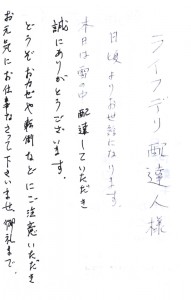 ライフデリ配達人様
日頃よりお世話になります。
本日は雪の中 配達していただき
誠にありがとうございます。
どうぞおカゼや転倒などにご注意いただき
お元気にお仕事なさって下さいませ。御礼まで。